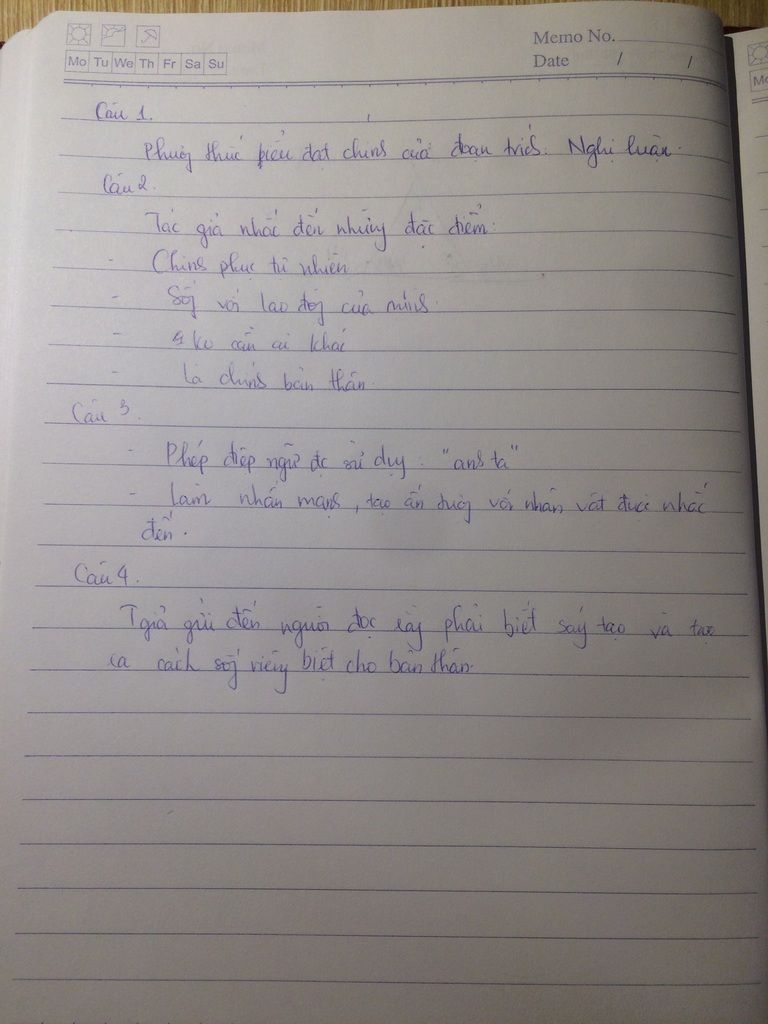 Memo No.
Mo Tu We Th Fr Sa Su
Date / /
Câu 1.
Phương thức biểu đạt chính của đoạn trích: Nghị luận.
Câu 2.
Tác giả nhắc đến những đặc điểm:
- Chinh phục tự nhiên
- Sống với lao động của mình.
- ko cần ai khác
- là chính bản thân.
Câu 3.
- Phép điệp ngữ đc sử dụng: "anh ta"
- Làm nhấn mạnh, tạo ấn tượng với nhân vật được nhắc
đến.
Câu 4.
Tgiả gửi đến người đọc rằng phải biết sáng tạo và tạo
ra cách sống riêng biệt cho bản thân.
Mo